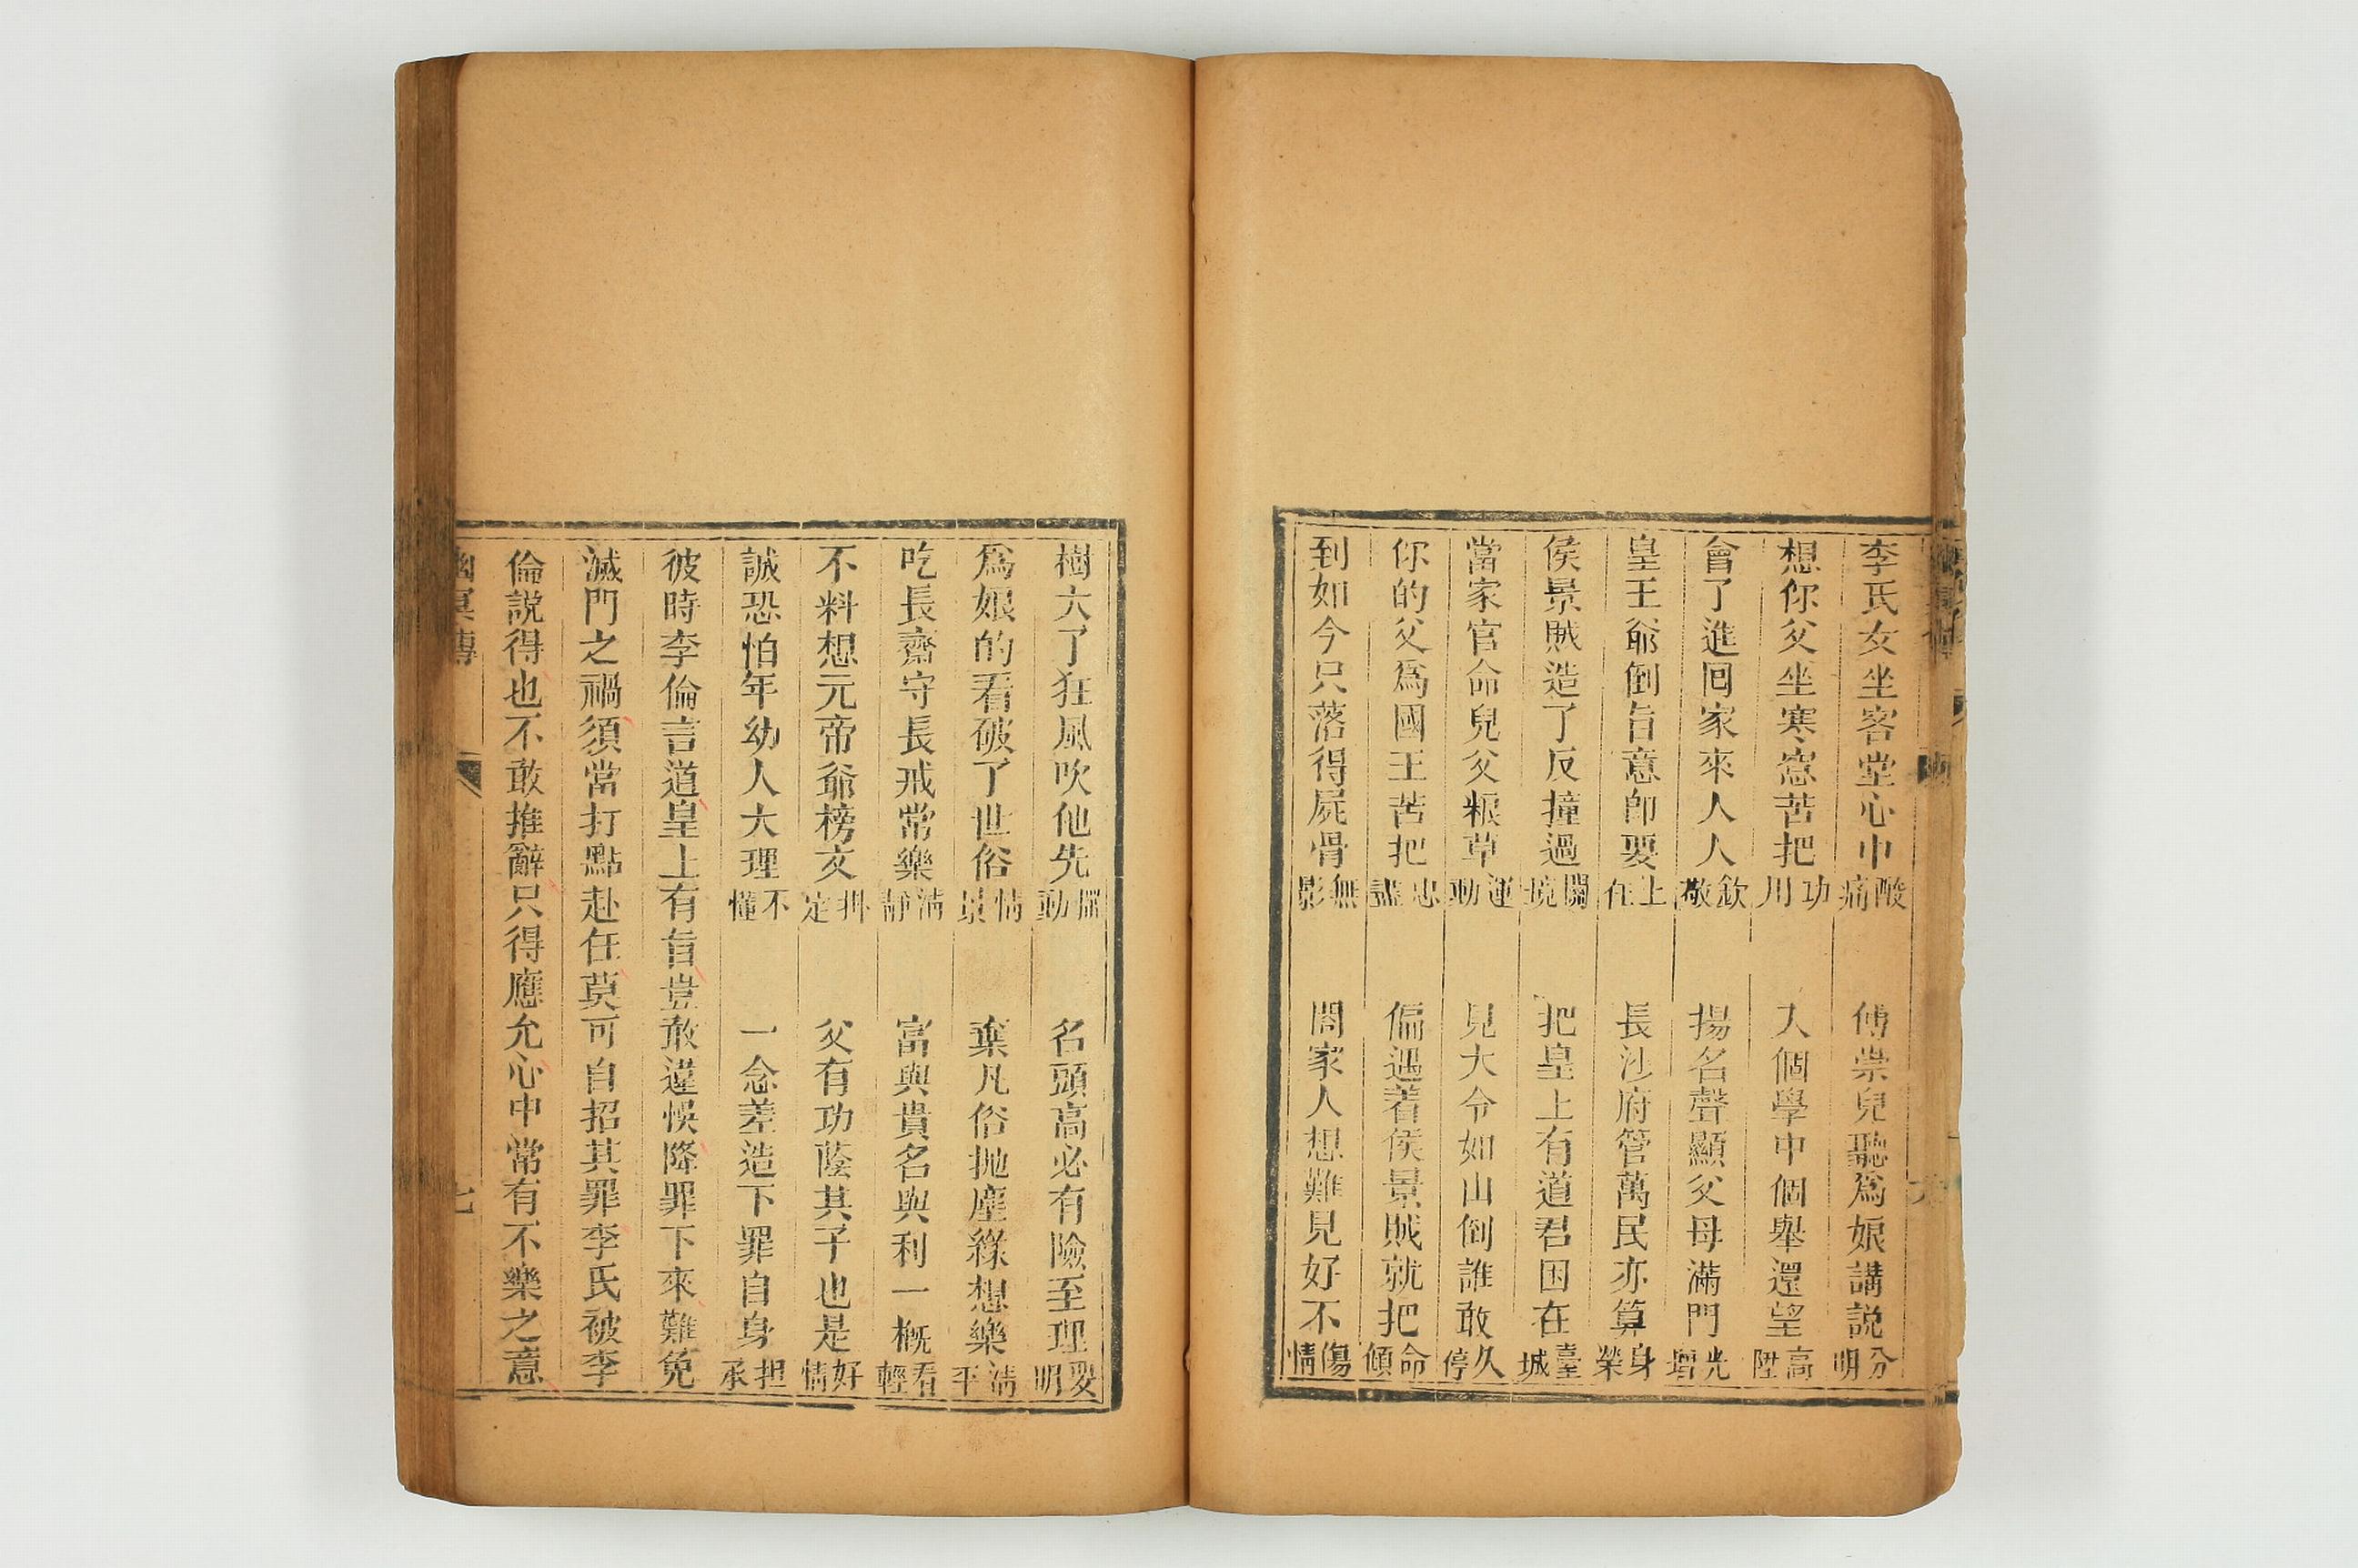 李氏女坐客堂心中酸痛　傅崇兒聽爲娘講説分明
想你父坐寒窓苦把功用　入個學中個舉還望高陞
會了進囘家來人人欽敬　揚名聲顯父母滿門光增
皇王爺倒旨意卽要上任　長沙府管萬民亦算身榮
侯景賊造了反撞過關境　把皇上有道君困在臺城
當家官命兒父粮草運動　見大令如山倒誰敢久停
你的父爲國王苦把忠盡　偏遇着侯景賊就把命傾
到如今只落得屍骨無影　閤家人想難見好不傷情
樹大了狂風吹他先摇動　名頭高必有險至理要明
爲娘的看破了世俗情景　棄凡俗抛塵緣想樂清平
吃長齋守長戒常樂清靜　富與貴名與利一槪看輕
不料想元帝爺榜文掛定　父有功蔭其子也是好情
誠恐怕年幼人大理不懂　一念差造下罪自身担承
彼時李倫言道皇上有旨豈敢違悞降罪下來難免
滅門之禍須當打點赴任莫可自招其罪李氏被李
倫説得也不敢推辭只得應允心中常有不樂之意
幽冥傳　七